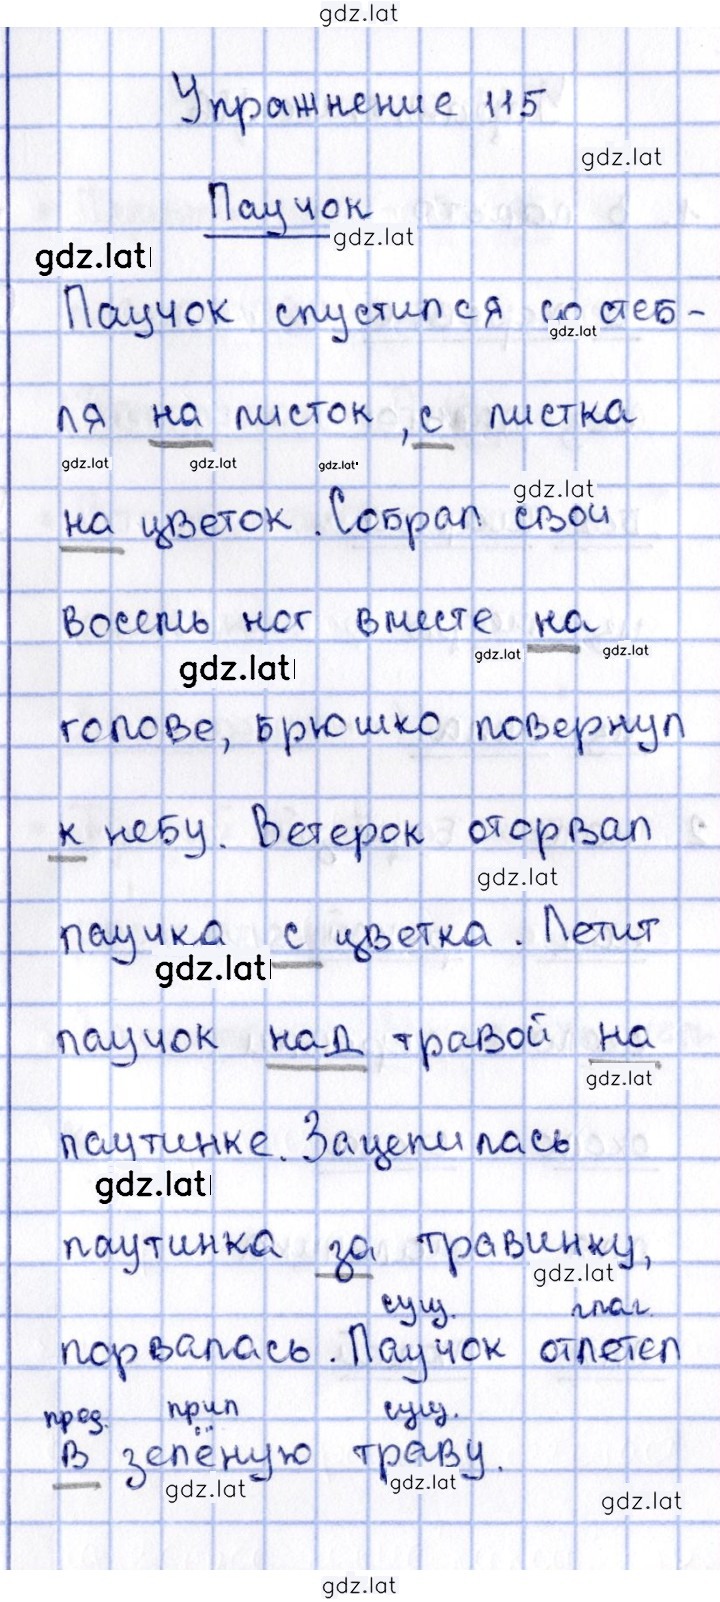 gdz.lat
Упражнение 115
gdz.lat
Паучок
gdz.lat
gdz.lat
Паучок спустился со стеб-
gdz.lat
ля на листок, с листка
gdz.lat gdz.lat gdz.lat
gdz.lat
на цветок. Собрал свои
восемь ног вместе на
gdz.lat gdz.lat gdz.lat
голове, брюшко повернул
к небу. Ветерок оторвал
gdz.lat
паучка с цветка. Летит
gdz.lat
паучок над травой на
gdz.lat
паутинке. Зацепилась
gdz.lat
паутинка за травинку,
gdz.lat
сущ. глаг.
порвалась. Паучок отлетел
пред. прил сущ.
в зелёную траву.
gdz.lat gdz.lat
gdz.lat
gdz.lat